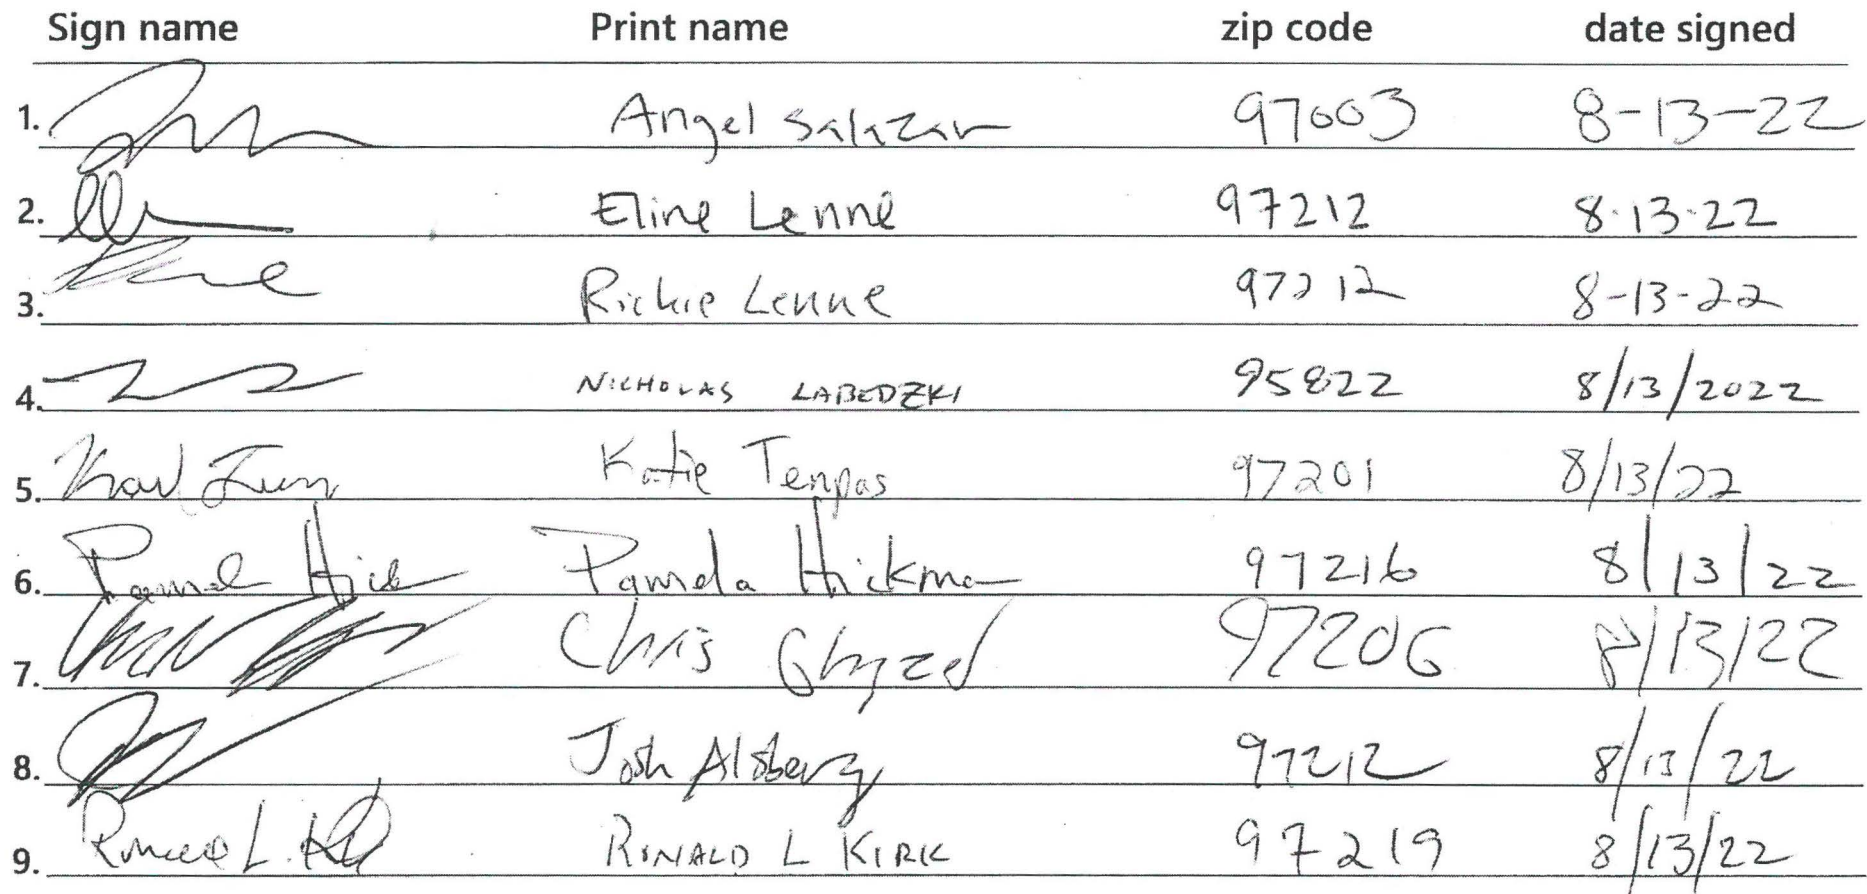 Sign name Print name zip code date signed
1. Angel Salazar 97003 8-13-22
2. Eline Lenne 97212 8-13-22
3. Rickie Lenne 97212 8-13-22
4. NICHOLAS LABEDZKI 95822 8/13/2022
5. Katie Tenpas 97201 8/13/22
6. Pamela Hickman 97216 8/13/22
7. Chris 97206 8/13/22
8. Josh Alsberg 97212 8/13/22
9. RONALD L KIRK 97219 8/13/22